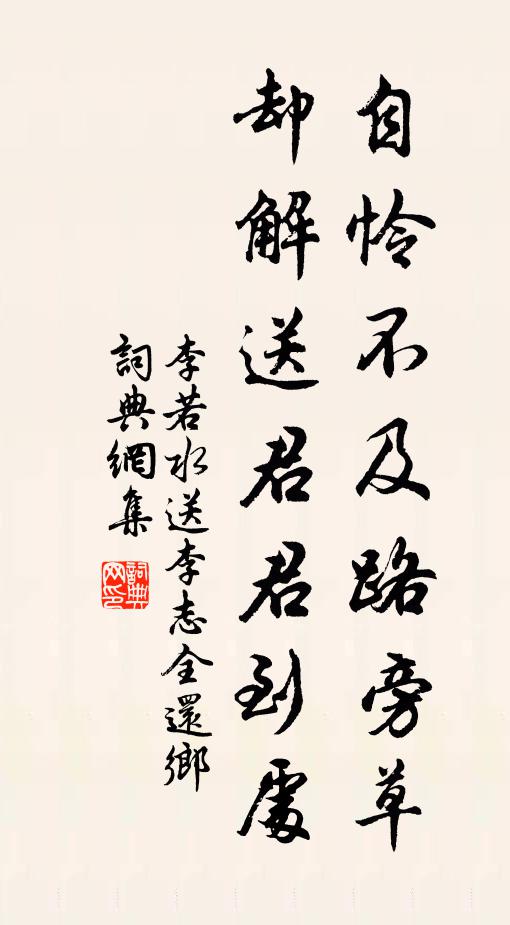 自怜不及路旁草
却解送君君到處
李若水送李志全還鄉
詞典網集
詞典網印